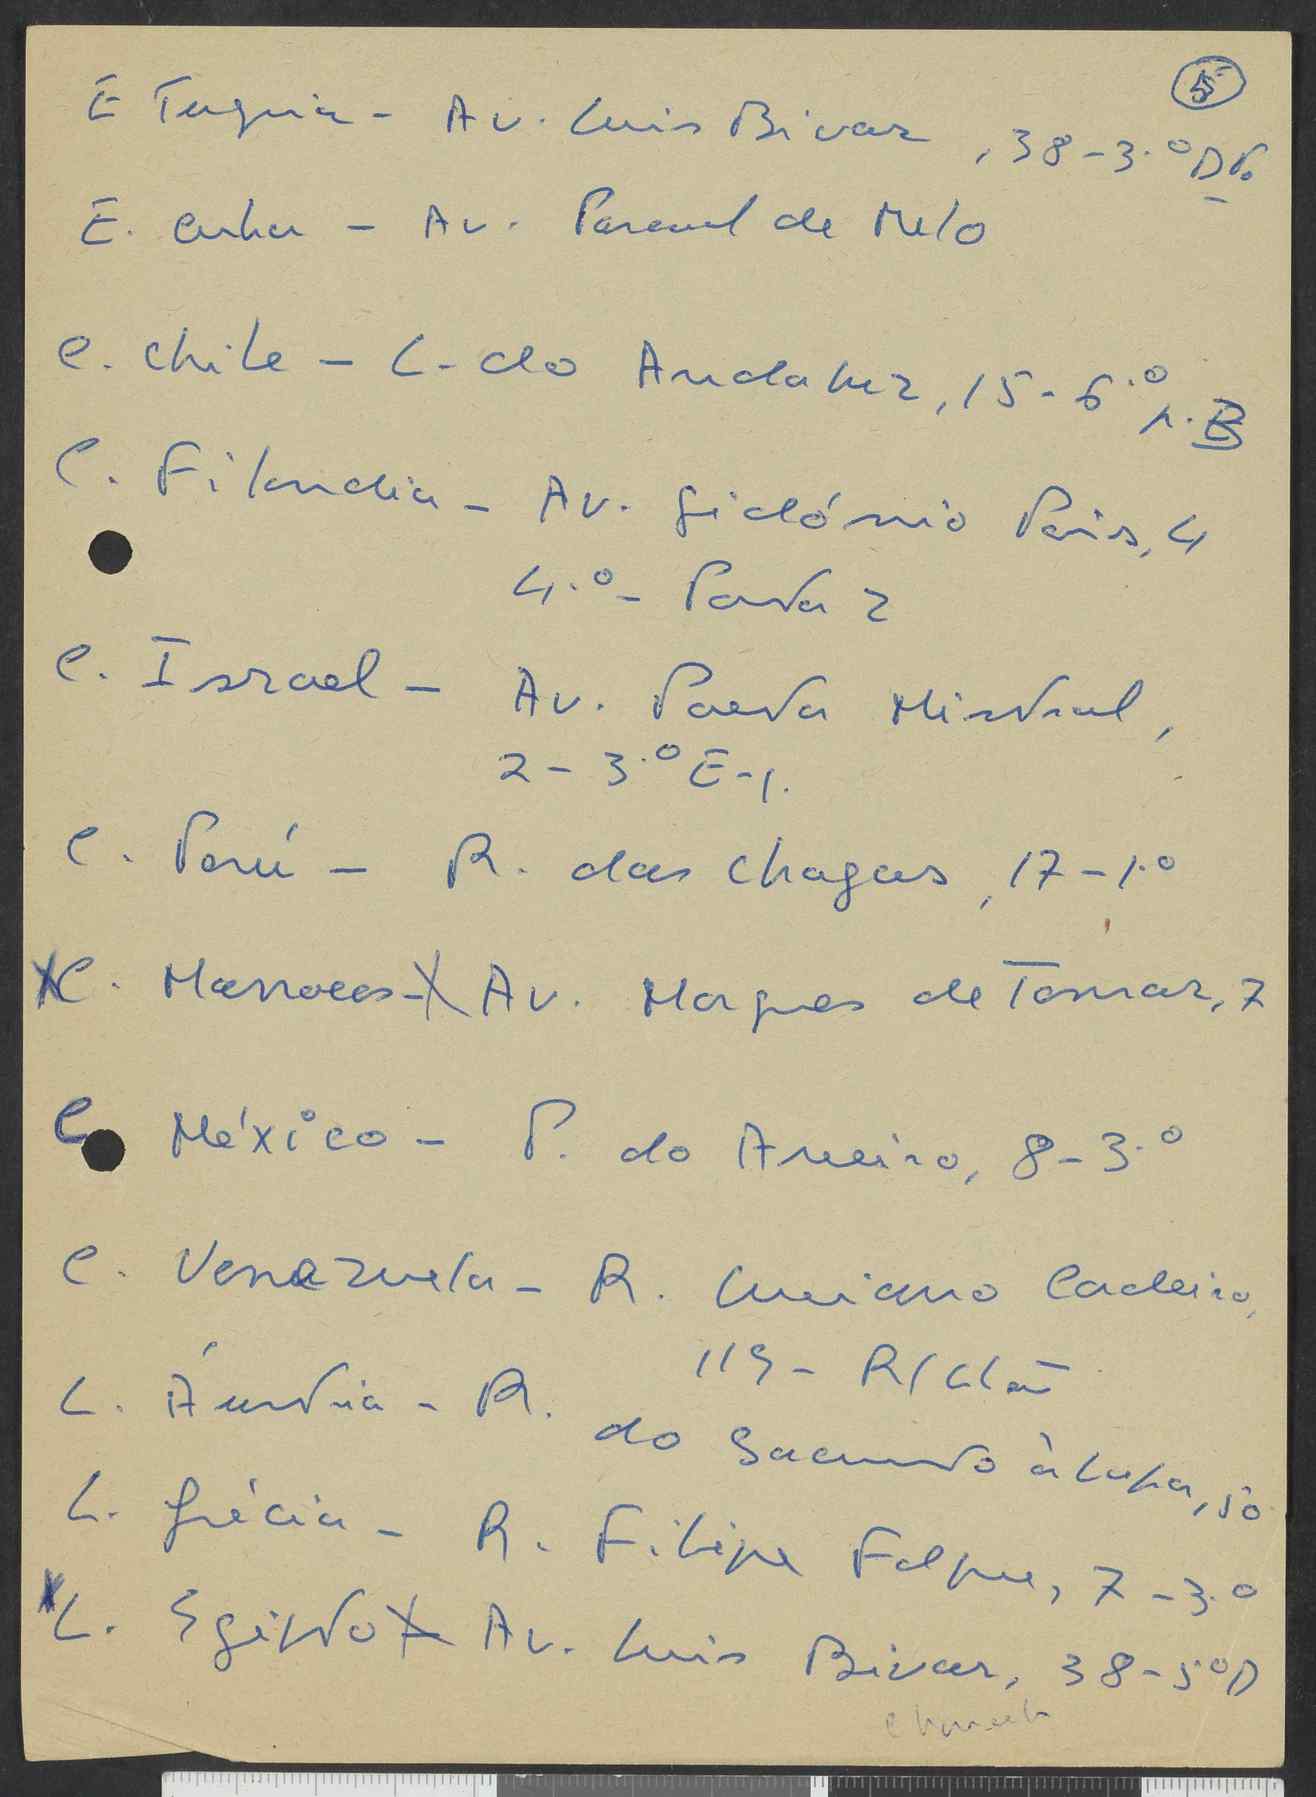 5
E Turquia - Av. Luis Bivar, 38-3.º Dto
E. Cuba - Av. Pascoal de Melo
C. Chile - L. do Andaluz, 15-6.º n. B
C. Filandia - Av. Sidónio Pais, 4
4.º - Porta 2
C. Israel - Av. Poeta Mistral,
2 - 3.º E-1.
C. Perú - R. das Chagas, 17-1.º
X C. Marrocos - X Av. Marques de Tomar, 7
C. México - P. do Areeiro, 8-3.º
C. Venezuela - R. Luciano Cordeiro,
119 - R/Chão
L. Áustria - R. do Sacramento à Lapa, 50
L. Grécia - R. Filipe Folque, 7-3.º
X L. Egipto X Av. Luis Bivar, 38-5º D